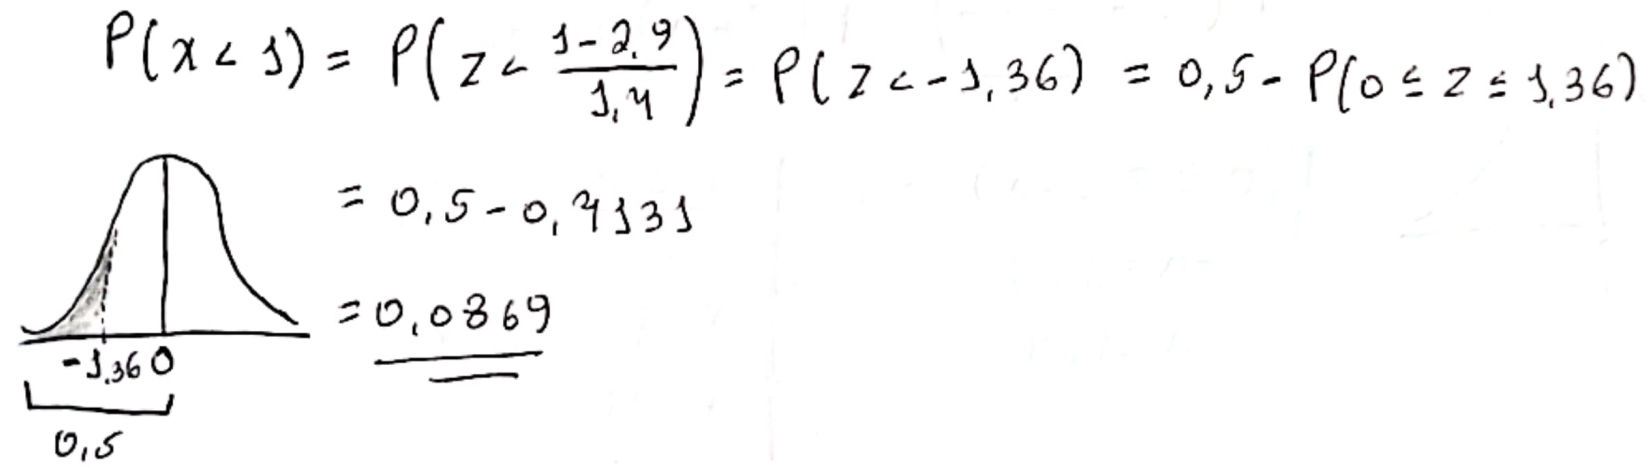 P(x < 1) = P(Z < \frac{1-2,9}{1,4}) = P(Z < -1,36) = 0,5 - P(0 ≤ Z ≤ 1,36)
= 0,5 - 0,4131
= 0,0869
-1,36 0
0,5